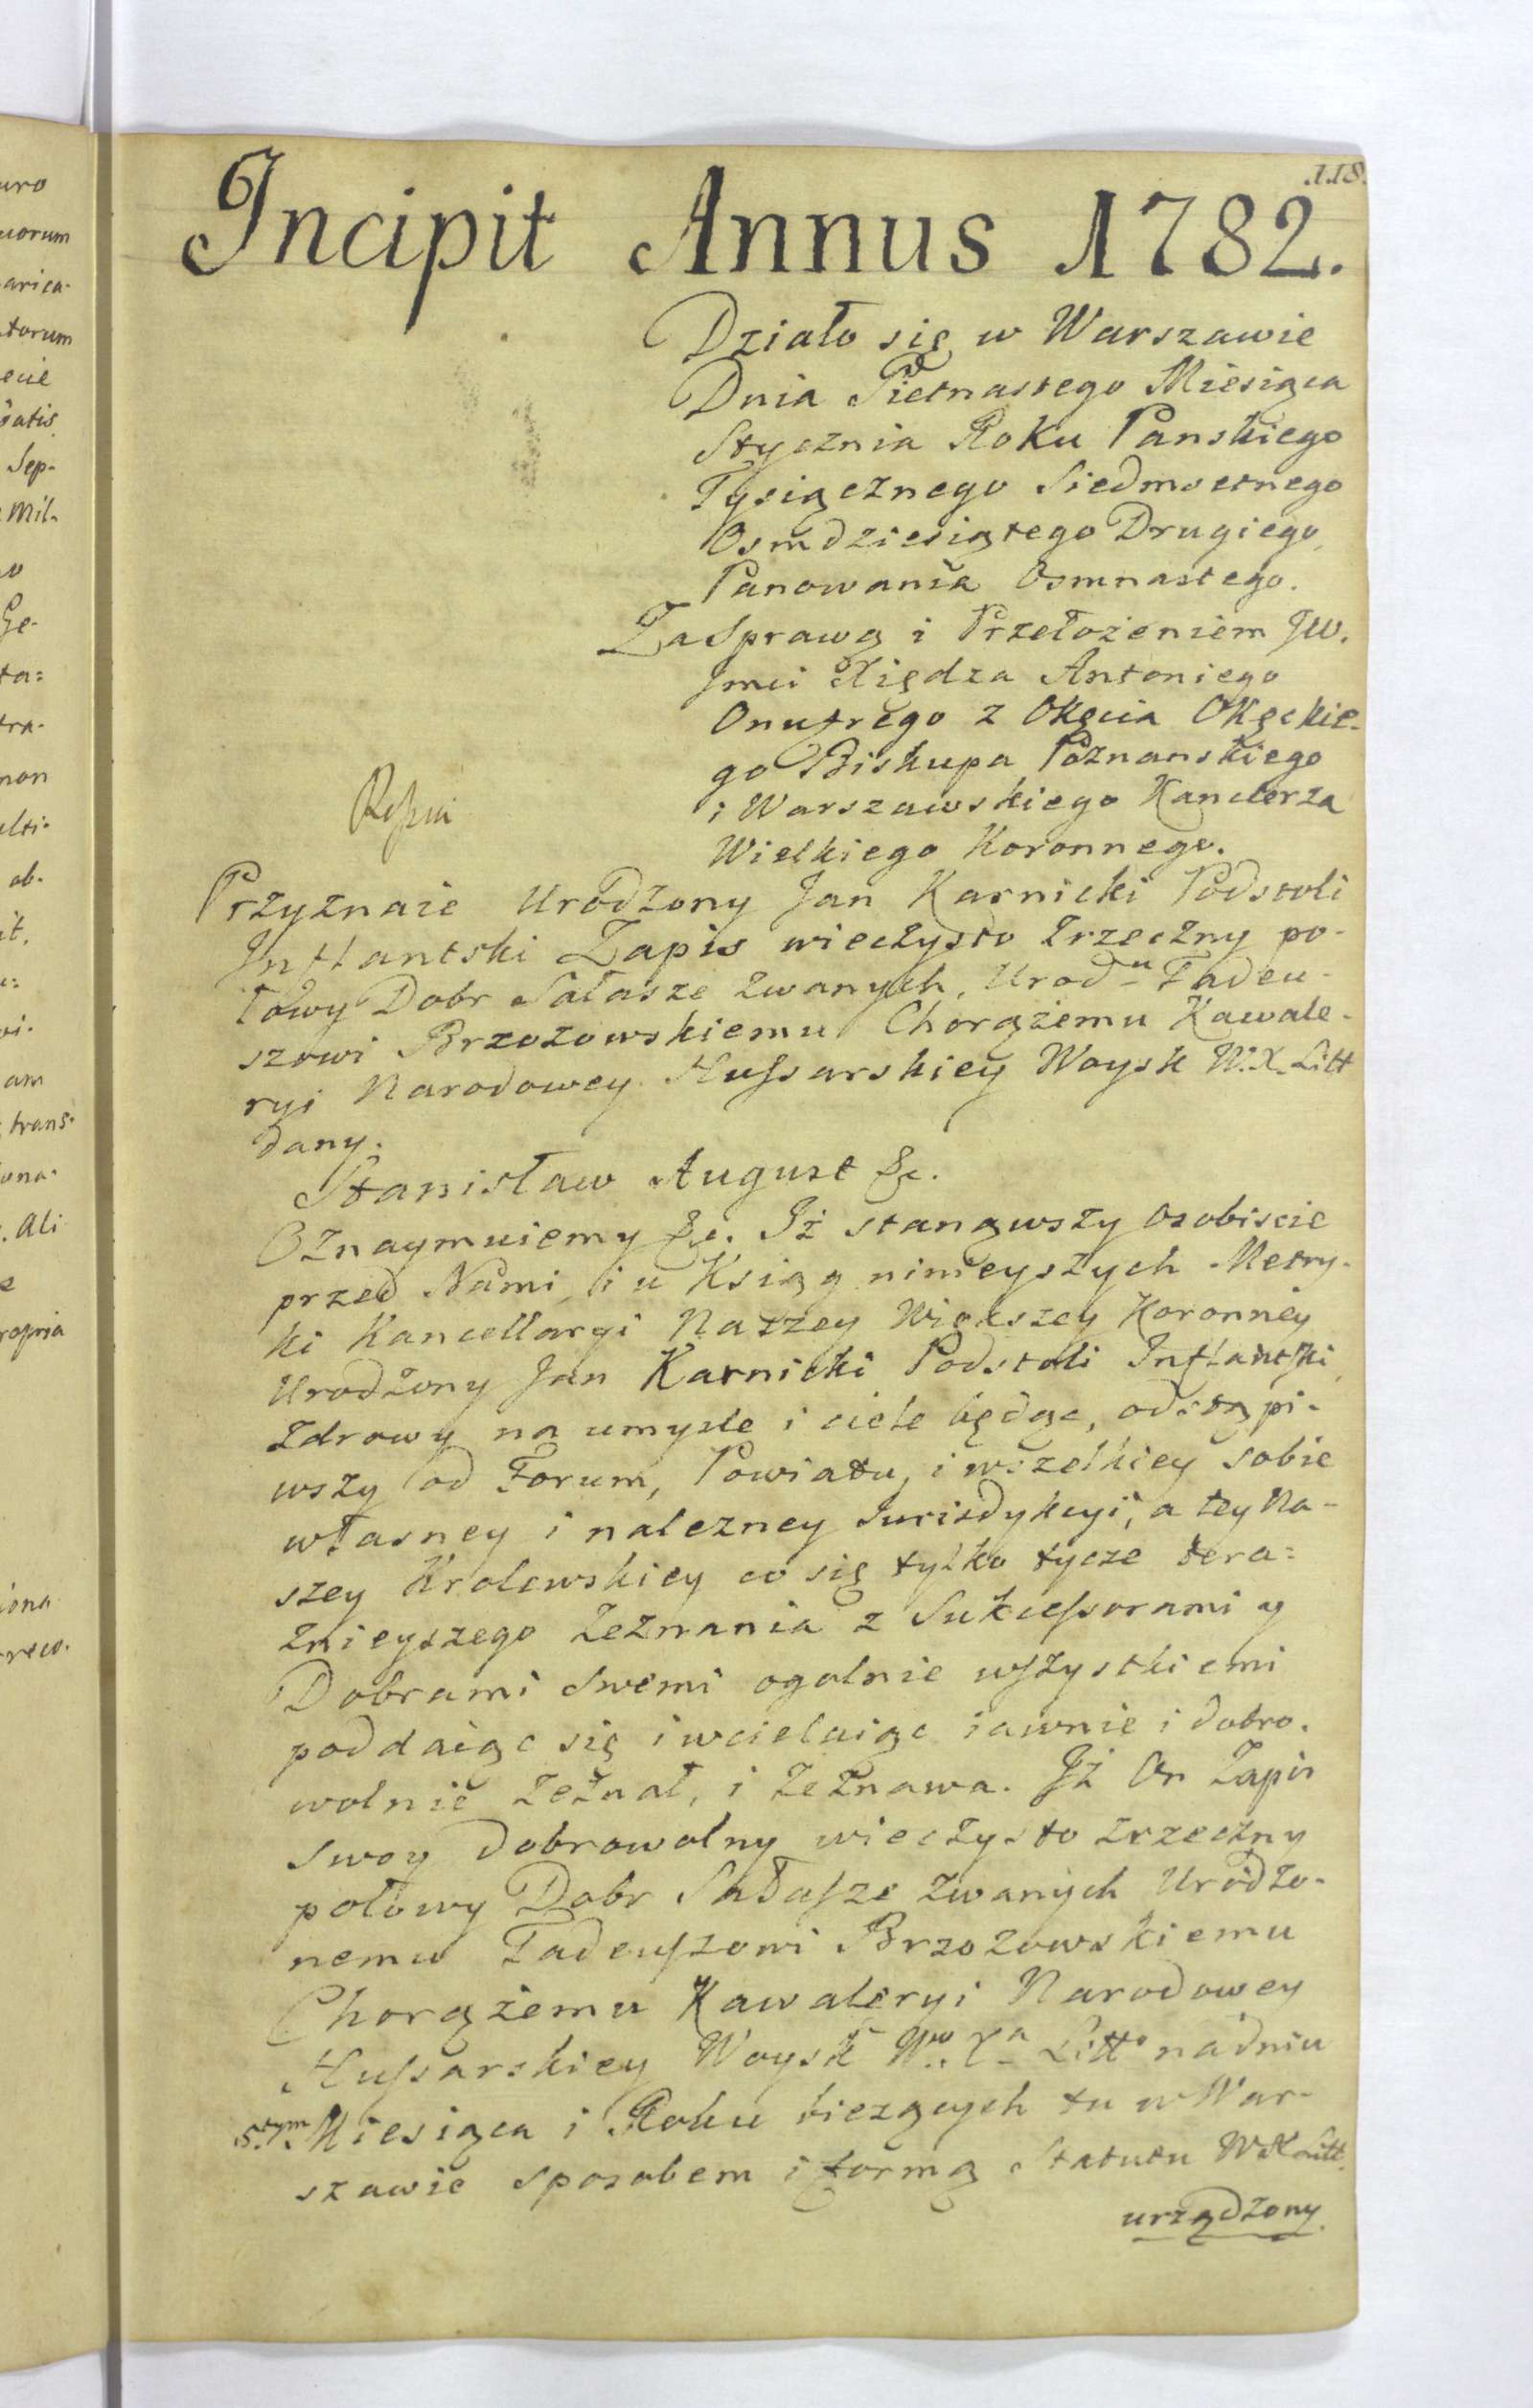 .118.
Incipit Annus 1782.
Działo się w Warszawie
Dnia Pietnastego Miesiąca
Stycznia Roku Panskiego
Tysiącznego Siedmsetnego
Osmdziesiątego Drugiego,
Panowania Osmnastego.
Za Sprawą i Przełożeniem JW.
Jmci Xiędza Antoniego
Onufrego z Okęcia Okęckie-
go Biskupa Poznanskiego
i Warszawskiego Kanclerza
Wielkiego Koronnego.
Przyznaie Urodzony Jan Karnicki Podstoli
Inflantski Zapis wieczysto Zrzeczny po-
łowy Dobr Sałasze zwanych, Urodu Tadeu-
szowi Brzozowskiemu Chorążemu Kawale-
ryi Narodowey Hussarskiey Woysk W.X. Litt
dany.
Stanisław August &c.
Oznaymuiemy &c. Iż stanąwszy osobiscie
przed Nami, i u Ksiąg ninieyszych Metry-
ki Kancellaryi Naszey Większey Koronney
Urodzony Jan Karnicki Podstoli Inflantski,
Zdrowy na umysle i ciele będąc, odstąpi-
wszy od Forum, Powiatu, i wszelkiey sobie
własney i nalezney Jurisdykcyi, a tey Na-
szey Krolewskiey co się tylko tycze tera=
znieyszego Zeznania z Sukcessorami y
Dobrami Swemi ogolnie wszystkiemi
poddaiąc się i wcielaiąc iawnie i dobro-
wolnie Zeznał, i Zeznawa. Iż On Zapis
Swoy dobrowolny wieczysto Zrzeczny
połowy Dobr Sałasze zwanych Urodzo-
nemu Tadeuszowi Brzozowskiemu
Chorążemu Kawaleryi Narodowey
Hussarskiey Woysk Wo Xa Litto na dniu
5.tym Miesiąca i Roku biezących tu w War-
szawie sposobem i formą Statutu WX Litt.
urządzony